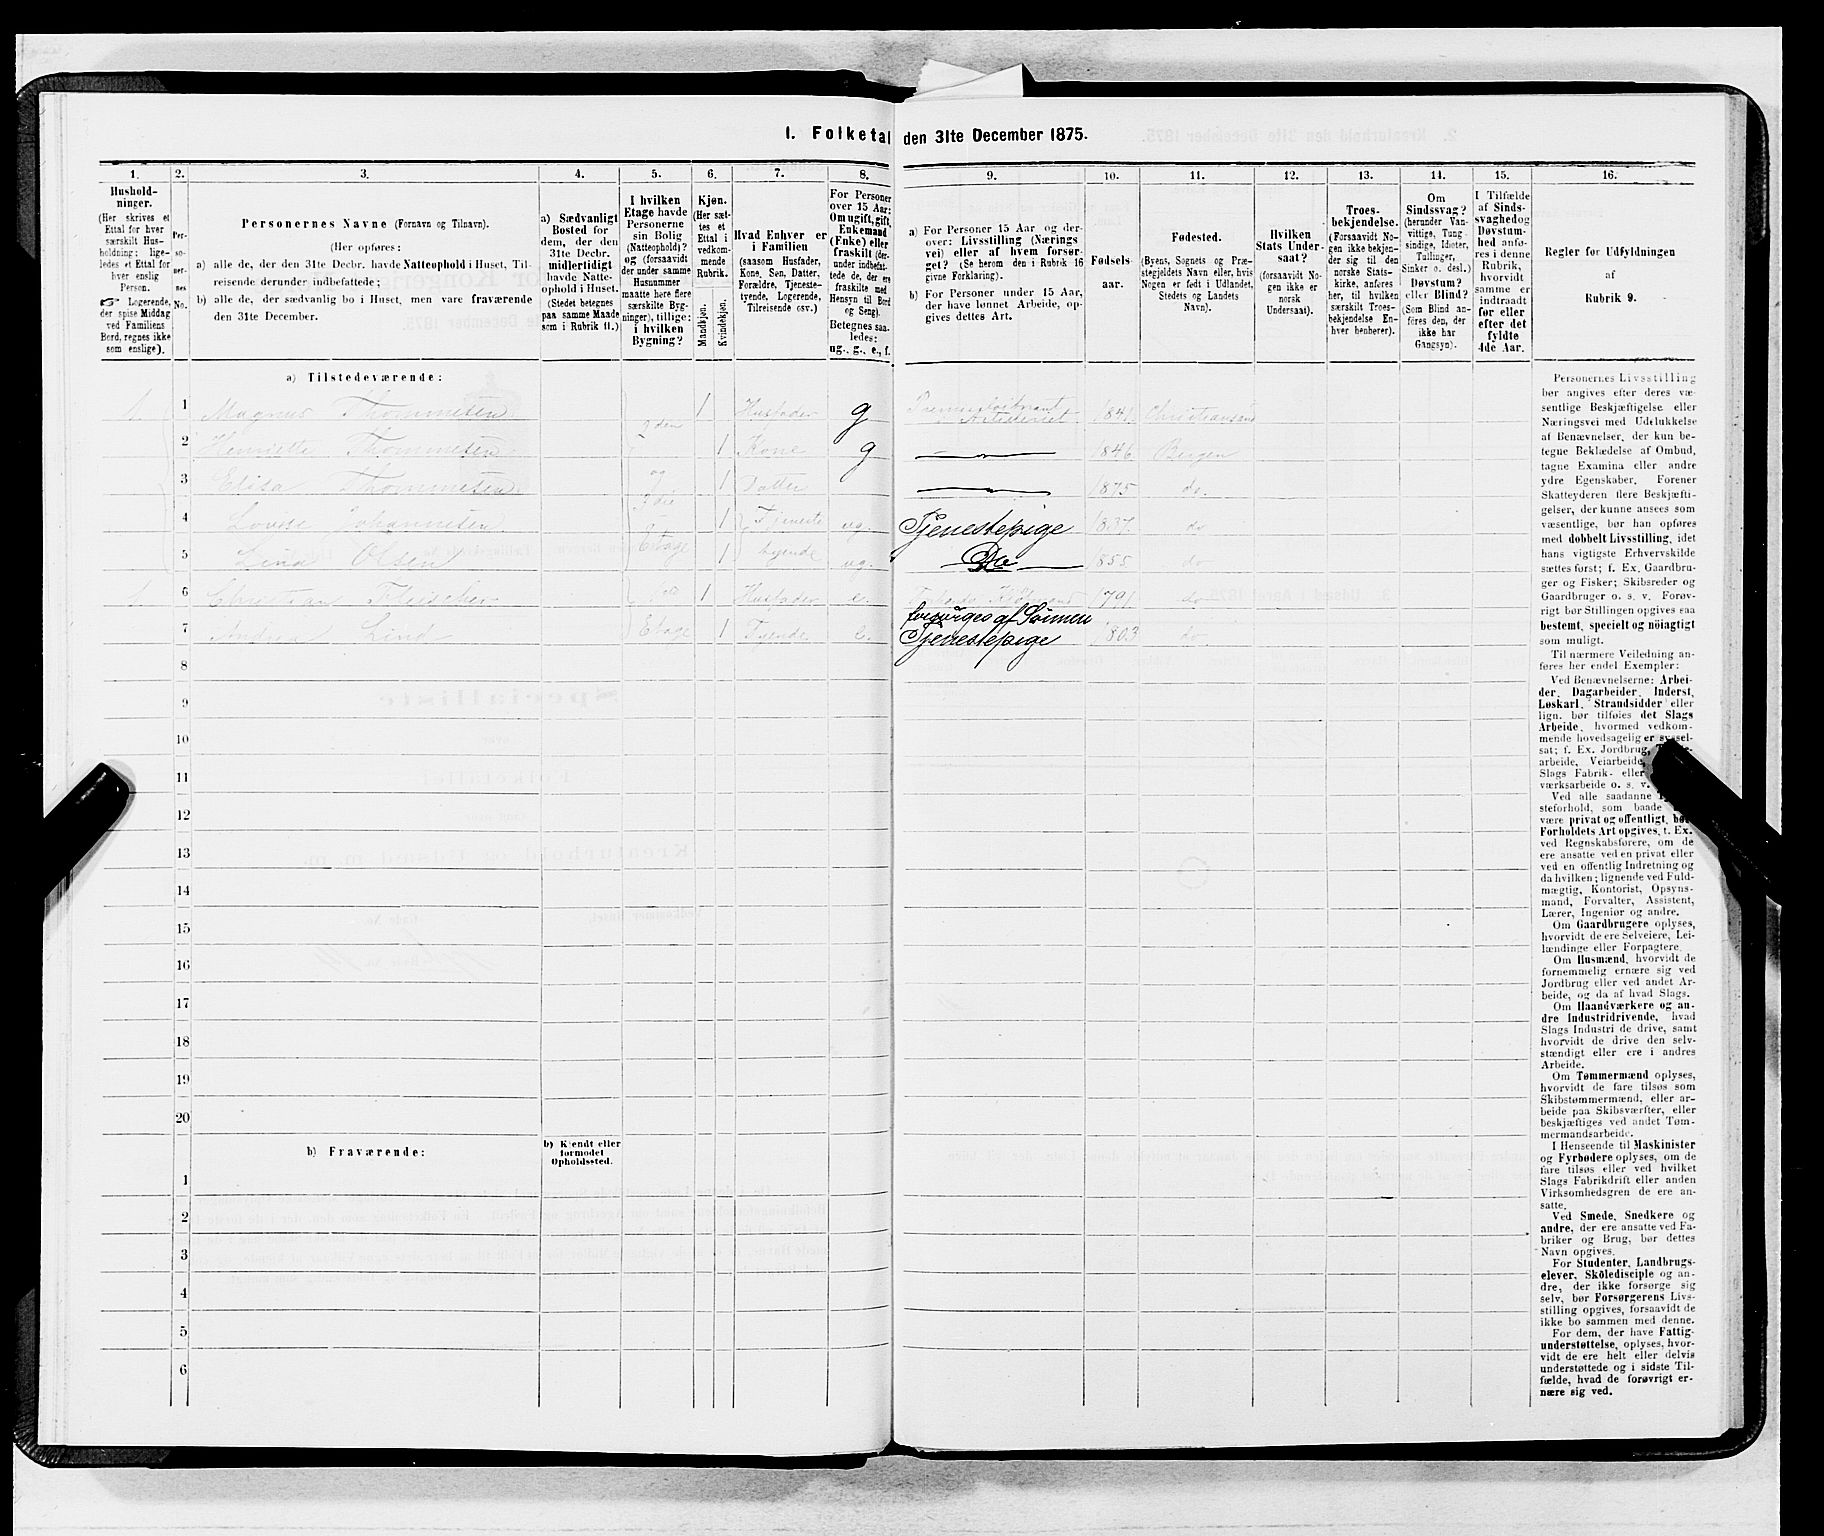 1. Folketal den 31te December 1875.
1.
2.
3.
4.
5.
6.
7.
8.
9.
10.
11.
12.
13.
14.
15.
16.
Hushold-
ninger.
(Her skrives et
Ettal for hver
særskilt Hus-
holdning; lige-
ledes et Ettal for
hver enslig
Person.
☞ Logerende,
der spise Middag
ved Familiens
Bord, regnes ikke
som enslige).
Per-
so-
ner-
nes
No.
Personernes Navne (Fornavn og Tilnavn).
(Her opføres:
a) alle de, der den 31te Decbr. havde Natteophold i Huset, Til-
reisende derunder indbefattede;
b) alle de, der sædvanlig bo i Huset, men vare fraværende
den 31te December.
a) Sædvanligt
Bosted for
dem, der den
31te Decbr.
midlertidigt
havde Natte-
ophold i Huset.
(Stedet betegnes
paa samme Maade
som i Rubrik 11.)
I hvilken
Etage havde
Personerne
sin Bolig
(Natteophold)?
og (forsaavidt
der under samme
Husnummer
maatte høre flere
særskilte Byg-
ninger), tillige:
i hvilken
Bygning?
Kjøn.
(Her sæt-
tes et
Ettal i
vedkom-
mende
Rubrik.
Mandkjøn.
Kvindekjøn.
Hvad Enhver er
i Familien
(saasom Husfader,
Kone, Søn, Datter,
Forældre, Tjeneste-
tyende, Logerende,
Tilreisende osv.)
For Personer
over 15 Aar:
Om ugift, gift,
Enkemand
(Enke) eller
fraskilt (der-
under indbefat-
tede de, der ere
fraskilte med
Hensyn til Bord
og Seng).
Betegnes saa-
ledes:
ug., g., e., f.
a) For Personer 15 Aar og der-
over: Livsstilling (Nærings
vei) eller af hvem forsør-
get? (Se herom den i Rubrik 16
givne Forklaring).
b) For Personer under 15 Aar,
der have lønnet Arbeide, op-
gives dettes Art.
Fødsels-
aar.
Fødested.
(Byens, Sognets og Præ-
stegjeldets Navn eller, hvis
Nogen er født i Udlandet,
Stedets og Landets
Navn).
Hvilken
Stats Under-
saat?
(forsaavidt No-
gen ikke er
norsk
Undersaat).
Troes-
bekjendelse.
(Forsaavidt No-
gen ikke bekjen-
der sig til den
norske Stats-
kirke, anføres
her, til hvilken
særskilt Troes-
bekjendelse En-
hver henhører).
Om
Sindssvag?
(herunder Van-
vittige, Tung-
sindige, Idioter,
Tullinger,
Sinker o. desl.)
Døvstum?
eller Blind?
(Som Blind an-
føres den, der
ikke har
Gangsyn).
I Tilfælde
af Sinds-
svaghed og
Døvstum-
hed anfø-
res i denne
Rubrik,
hvorvidt
samme er
indtraadt
før eller
efter det
fyldte
4de Aar.
Regler for Udfyldningen
af
Rubrik 9.
a) Tilstedeværende:
1. 1 Magnus Thommesen 1 Husfader g Premierløitnant 1841 Christiansand
i Artilleriet
2den
2 Henriette Thommesen 1 Kone g 1846 Bergen
og
3 Elisa Thommesen 1 Datter 1875 do.
3die
4 Lovise Johannesen 1 Tjeneste ug. Tjenestepige 1837 do
5 Lina Olsen Etage 1 tyende ug. Do 1855 do
1. 6 Christian Fleischer 1 Husfader e. 1791 do
forsørges af Sønnen
7 Andrea Lind Etage 1 Tyende e. Tjenestepige 1803 do
8
9
10
11
12
13
14
15
16
17
18
19
20
b) Fraværende:
b) Kjendt eller
formodet
Opholdssted.
1
2
3
4
5
6
Personernes Livsstilling
bør angives efter deres væ-
sentlige Beskjæftigelse eller
Næringsvei med Udelukkelse
af Benævnelser, der kun be-
tegne Beklædelse af Ombud,
tagne Examina eller andre
ydre Egenskaber. Forener
Skatteyderen flere Beskjæfti-
gelser, der kunne ansees som
væsentlige, bør han opføres
med dobbelt Livsstilling, idet
hans vigtigste Erhvervskilde
sættes først; f. Ex. Gaardbru-
ger og Fisker; Skibsreder og
Gaardbruger o. s. v. Forøv-
rigt bør Stillingen opgives saa
bestemt, specielt og nöiagtigt
som muligt.
Til nærmere Veiledning an-
føres her endel Exempler:
Ved Benævnelserne: Arbei-
der, Dagarbeider, Inderst,
Løskarl, Strandsidder eller
lign. bør tilføies det Slags
Arbeide, hvormed vedkom-
mende hovedsagelig er syssel-
sat; f. Ex. Jordbrug,
arbeide, Veiarbeide,
Slags Fabrik- eller
værksarbeide o. s. v.
Ved alle saadanne
steforhold, som baade
være privat og offentligt, bør
Forholdets Art opgives, t. Ex.
ved Regnskabsførere, om de
ere ansatte ved en privat eller
ved en offentlig Indretning og
da hvilken; lignende ved Fuld-
mægtig, Kontorist, Opsyns-
mand, Forvalter, Assistent,
Lærer, Ingeniør og andre.
Om Gaardbrugere oplyses,
hvorvidt de ere Selveiere, Lei-
lændinge eller Forpagtere.
Om Husmænd, hvorvidt de
fornemmelig ernære sig ved
Jordbrug eller ved andet Ar-
beide, og da af hvad Slags.
Om Haandværkere og an-
dre Industridrivende, hvad
Slags Industri de drive, samt
hvorvidt de drive den selv-
stændigt eller ere i andres
Arbeide.
Om Tømmermænd oplyses,
hvorvidt de fare tilsøs som
Skibstømmermænd, eller ar-
beide paa Skibsværfter, eller
beskjæftiges ved andet Tøm-
mermandsarbeide.
I Henseende til Maskinister
og Fyrbødere oplyses, om de
fare tilsøs eller ved hvilket
Slags Fabrikdrift eller anden
Virksomhedsgren de ere an-
satte.
Ved Smede, Snedkere og
andre, der ere ansatte ved Fa-
briker og Brug, bør dettes
Navn opgives.
For Studenter, Landbrugs-
elever, Skoledisciple og an-
dre, der ikke forsørge sig
selv, bør Forsørgerens Livs-
stilling opgives, forsaavidt de
ikke bo sammen med denne.
For dem, der have Fattig-
understøttelse, oplyses, hvor-
vidt de ere helt eller delvis
understøttede og i sidste Til-
fælde, hvad de forøvrigt er-
nære sig ved.